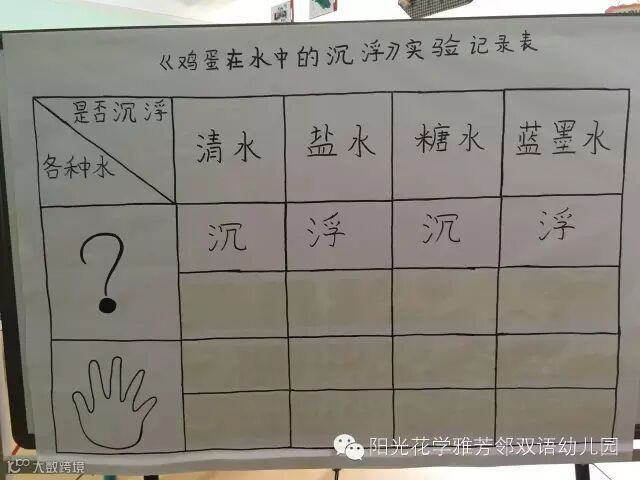 《鸡蛋在水中的沉浮》实验记录表
是否沉浮
各种水
清水 盐水 糖水 蓝墨水
？ 沉 浮 沉 浮
阳光花学雅芳邻双语幼儿园
大数跨境